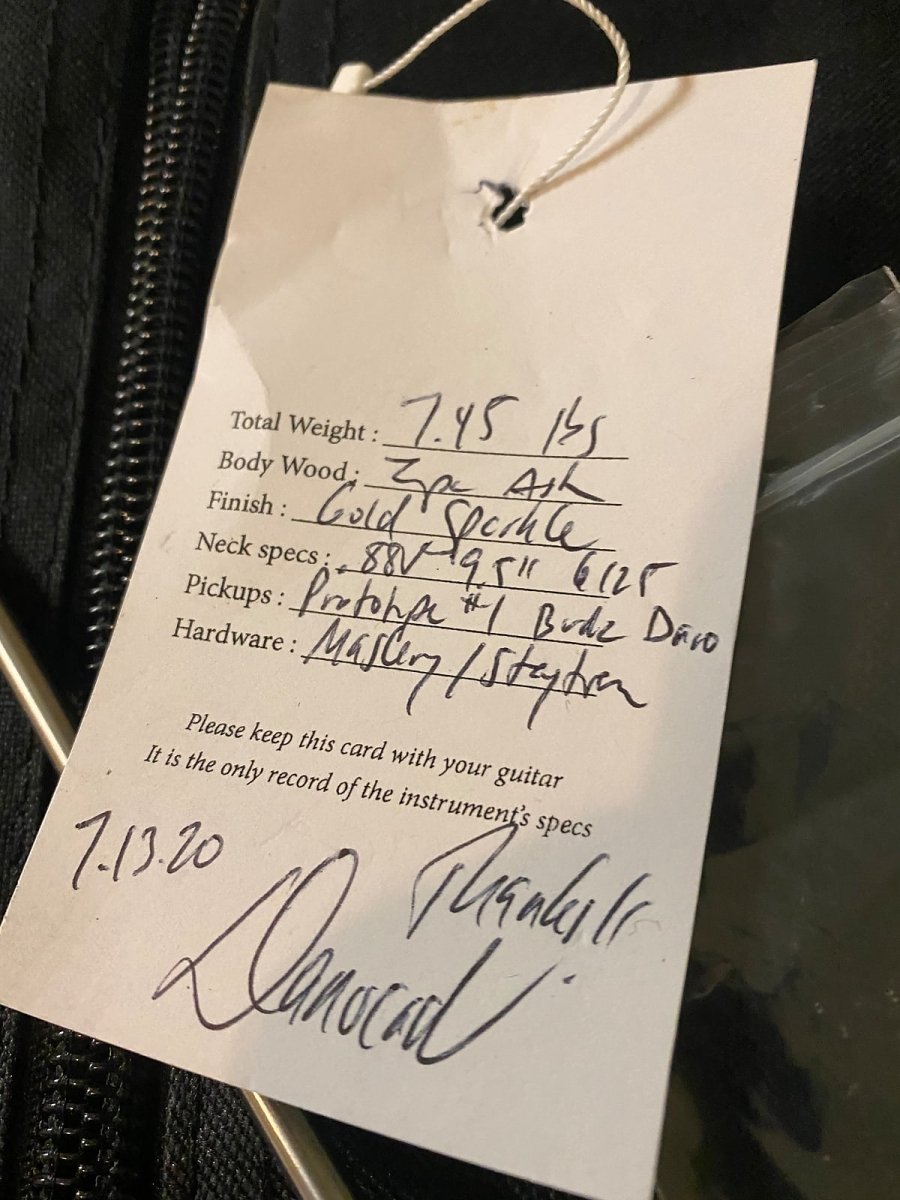 Total Weight : 7.45 lbs
Body Wood : 2pc Ash
Finish : Gold Sparkle
Neck specs : .88V 9.5" 6125
Pickups : Prototype #1 Dano
Hardware : Mastery / Staytrem
Please keep this card with your guitar
It is the only record of the instrument's specs
7.13.20
Thanks!!
Danocad